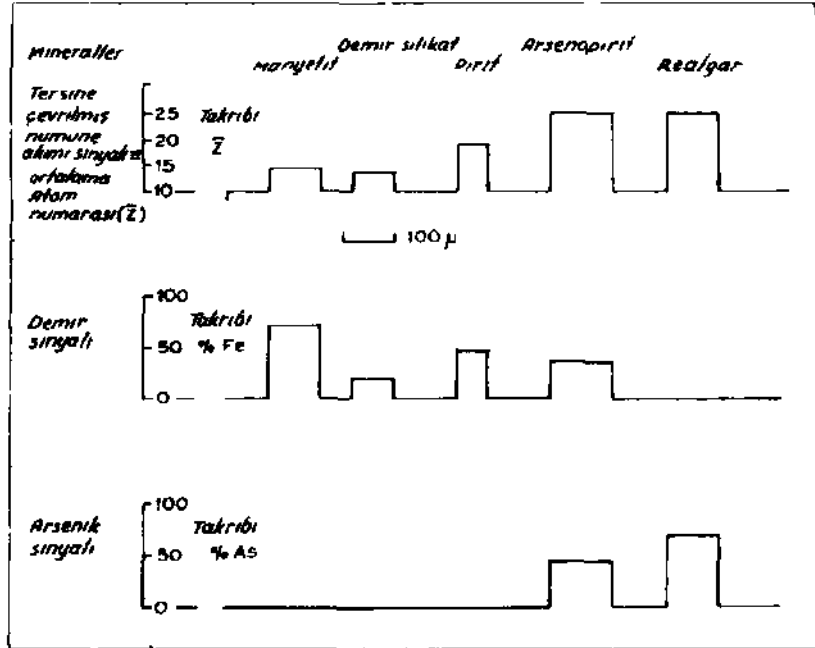 Mineraller
Manyetit
Demir silikat
Pirit
Arsenopirit
Realgar
Tersine
çevrilmiş
numune
akımı sinyali=
ortalama
Atom
numarası(Z̄)
25
20
15
10
Takribi
Z̄
100 μ
Demir
sinyalı
100
50
0
Takribi
% Fe
Arsenik
sinyalı
100
50
0
Takribi
% As